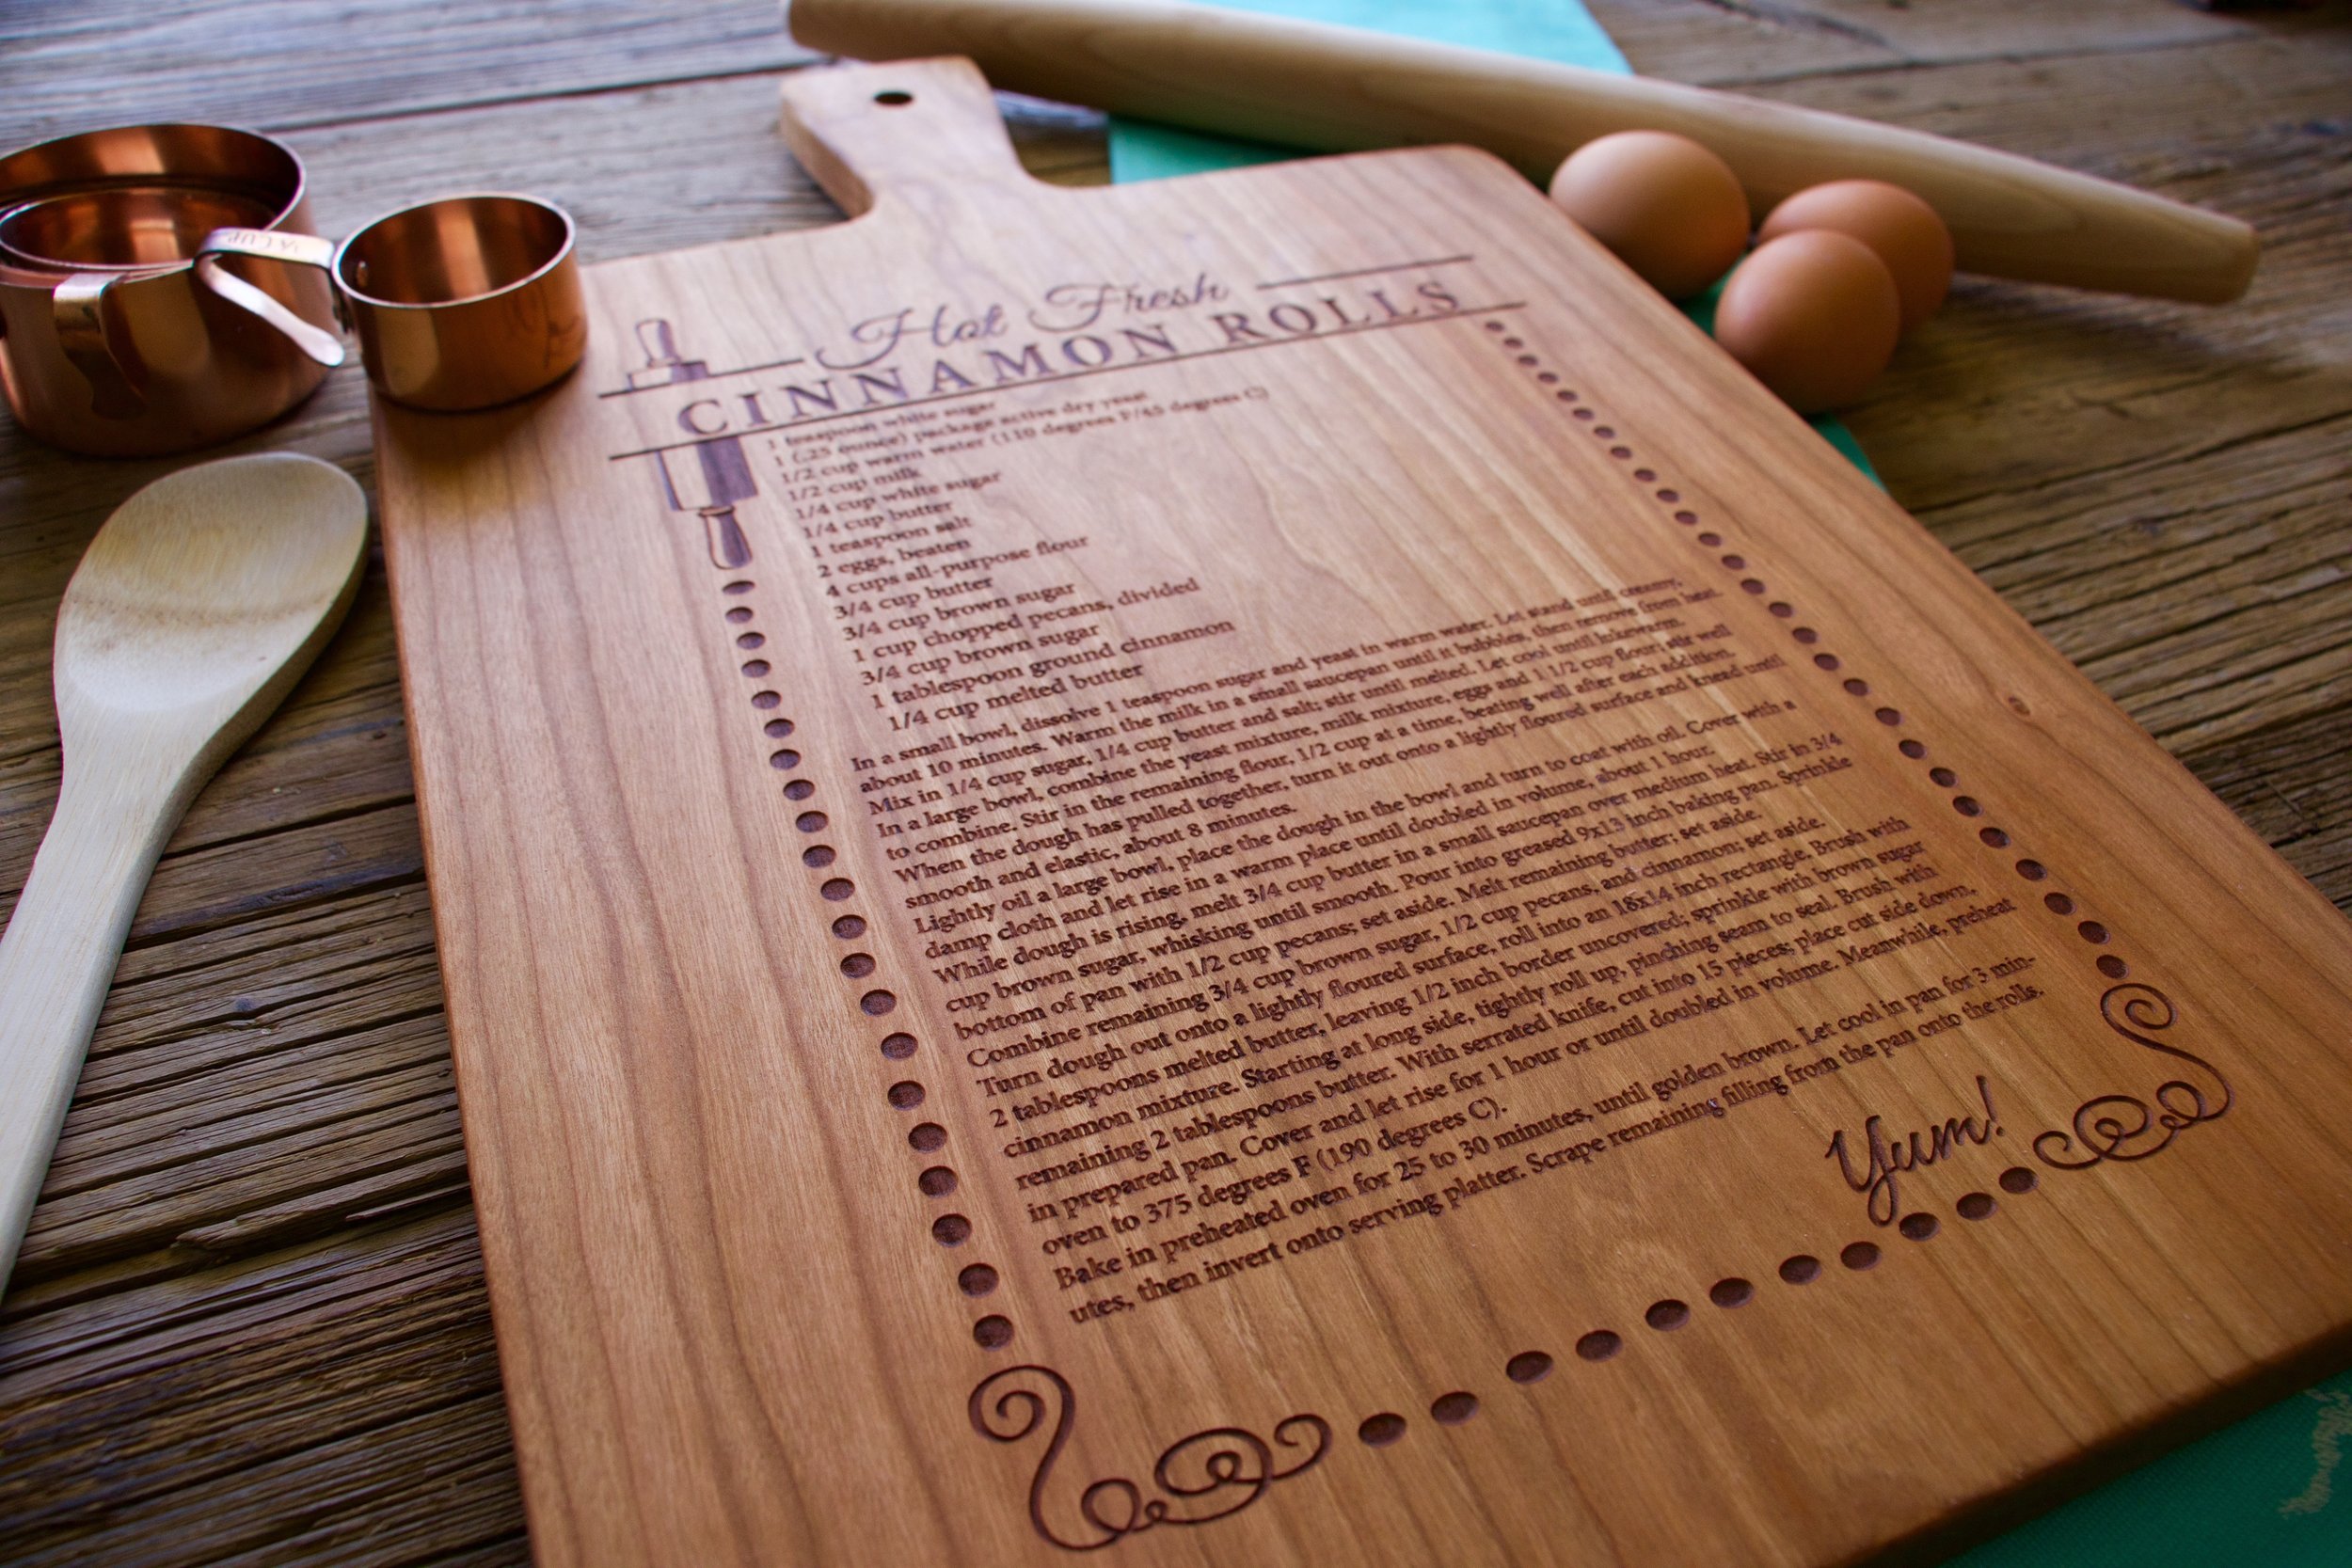 ¼ CUP
Hot Fresh
CINNAMON ROLLS
1 teaspoon white sugar
1 (.25 ounce) package active dry yeast
1/2 cup warm water (110 degrees F/45 degrees C)
1/2 cup milk
1/4 cup white sugar
1/4 cup butter
1 teaspoon salt
2 eggs, beaten
4 cups all-purpose flour
3/4 cup butter
3/4 cup brown sugar
1 cup chopped pecans, divided
3/4 cup brown sugar
1 tablespoon ground cinnamon
1/4 cup melted butter
In a small bowl, dissolve 1 teaspoon sugar and yeast in warm water. Let stand until creamy,
about 10 minutes. Warm the milk in a small saucepan until it bubbles, then remove from heat.
Mix in 1/4 cup sugar, 1/4 cup butter and salt; stir until melted. Let cool until lukewarm.
In a large bowl, combine the yeast mixture, milk mixture, eggs and 1 1/2 cup flour; stir well
to combine. Stir in the remaining flour, 1/2 cup at a time, beating well after each addition.
When the dough has pulled together, turn it out onto a lightly floured surface and knead until
smooth and elastic, about 8 minutes.
Lightly oil a large bowl, place the dough in the bowl and turn to coat with oil. Cover with a
damp cloth and let rise in a warm place until doubled in volume, about 1 hour.
While dough is rising, melt 3/4 cup butter in a small saucepan over medium heat. Stir in 3/4
cup brown sugar, whisking until smooth. Pour into greased 9x13 inch baking pan. Sprinkle
bottom of pan with 1/2 cup pecans; set aside. Melt remaining butter; set aside.
Combine remaining 3/4 cup brown sugar, 1/2 cup pecans, and cinnamon; set aside.
Turn dough out onto a lightly floured surface, roll into an 18x14 inch rectangle. Brush with
2 tablespoons melted butter, leaving 1/2 inch border uncovered; sprinkle with brown sugar
cinnamon mixture. Starting at long side, tightly roll up, pinching seam to seal. Brush with
remaining 2 tablespoons butter. With serrated knife, cut into 15 pieces; place cut side down,
in prepared pan. Cover and let rise for 1 hour or until doubled in volume. Meanwhile, preheat
oven to 375 degrees F (190 degrees C).
Bake in preheated oven for 25 to 30 minutes, until golden brown. Let cool in pan for 3 min-
utes, then invert onto serving platter. Scrape remaining filling from the pan onto the rolls.
Yum!